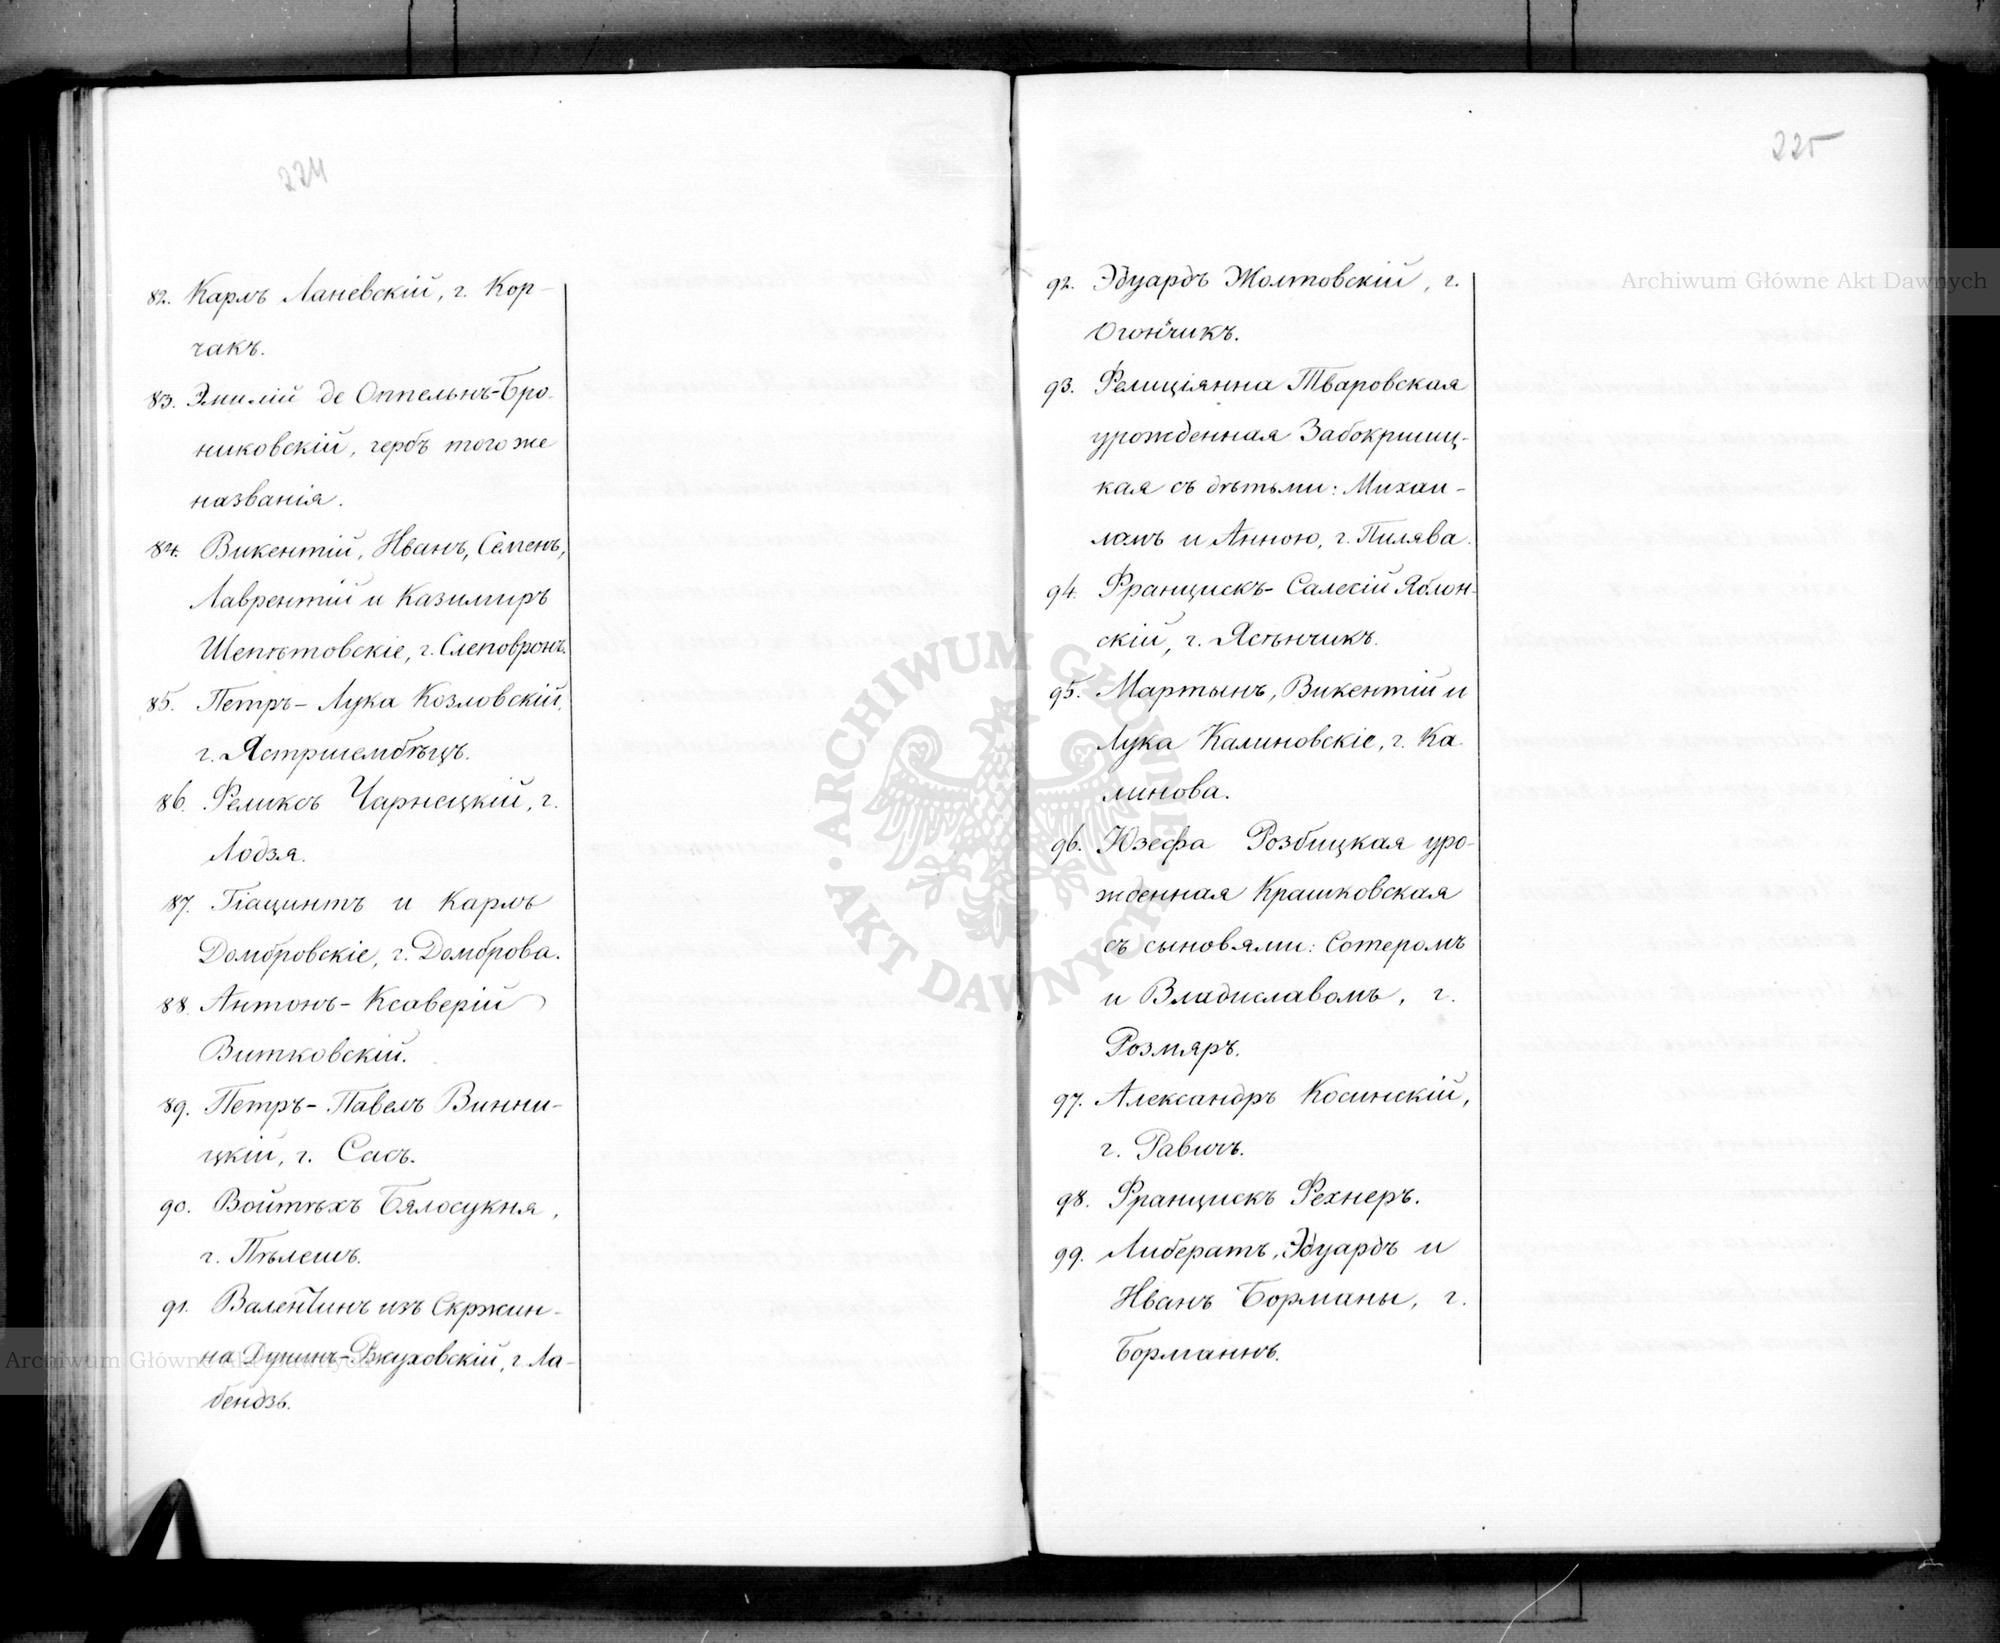 224
82. Карлъ Ланевскій, г. Кор-
чакъ.
83. Эмилій де Оппельнъ-Бро-
никовскій, гербъ того же
названія.
84. Викентій, Иванъ, Семенъ,
Лаврентій и Казимиръ
Шепѣтовскіе, г. Слеповронъ.
85. Петръ-Лука Козловскій,
г. Ястршембѣцъ.
86. Феликсъ Чарнецкій, г.
Лодзя.
87. Гіацинтъ и Карлъ
Домбровскіе, г. Домброва.
88. Антонъ-Ксаверій
Витковскій.
89. Петръ-Павелъ Винни-
цкій, г. Сасъ.
90. Войтѣхъ Бялосукня,
г. Пѣлешъ.
91. Валентинъ изъ Скржин-
на Дунинъ-Вжуховскій, г. Ла-
бендзь.
225
92. Эдуардъ Жолтовскій, г.
Огончикъ.
93. Фелиціянна Тваровская
урожденная Забокршиц-
кая съ дѣтьми: Михаи-
ломъ и Анною, г. Пилява.
94. Францискъ-Салесій Яблон-
скій, г. Ясѣнчикъ.
95. Мартынъ, Викентій и
Лука Калиновскіе, г. Ка-
линова.
96. Юзефа Розбицкая уро-
жденная Крашковская
съ сыновями: Сотеромъ
и Владиславомъ, г.
Розмяръ.
97. Александръ Косинскій,
г. Равичъ.
98. Францискъ Фехнеръ.
99. Либератъ, Эдуардъ и
Иванъ Борманы, г.
Борманнъ.
Archiwum Główne Akt Dawnych
Archiwum Główne Akt Dawnych
ARCHIWUM GŁÓWNE AKT DAWNYCH